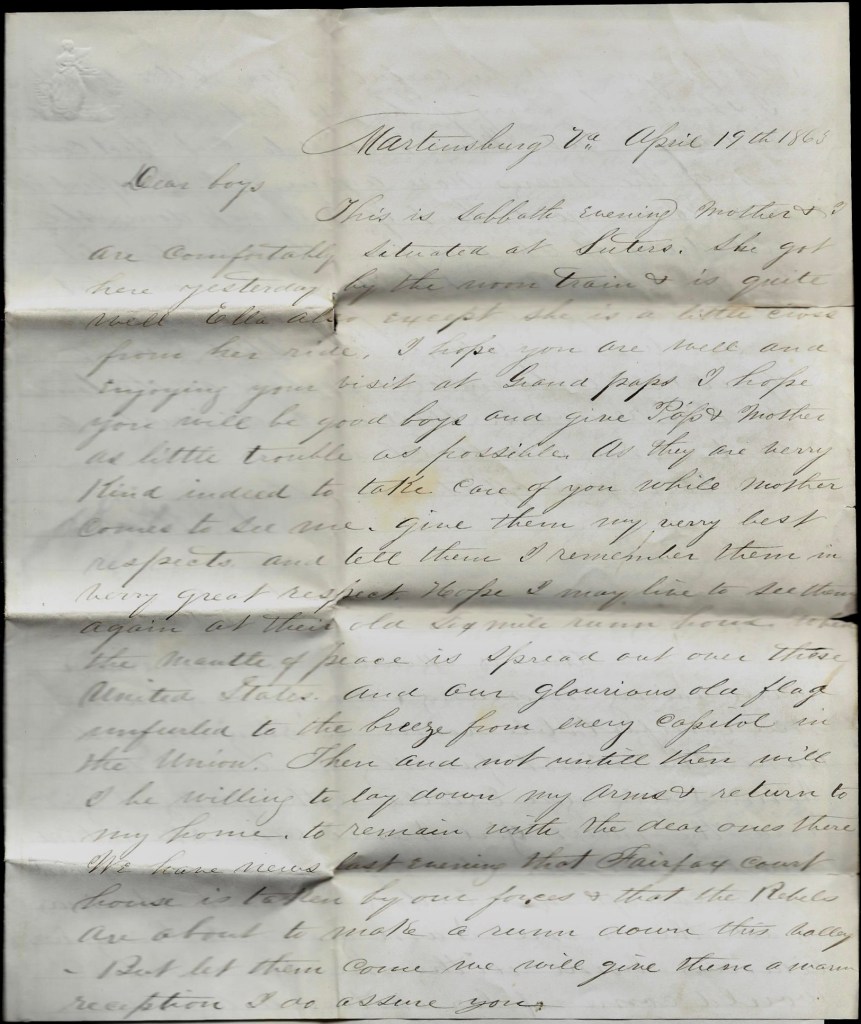 Martinsburg Va April 19th 1863
Dear boys
This is Sabbath evening Mother & I
are comfortably situated at Suters. She got
here yesterday by the noon train & is quite
well Ella also except she is a little cross
from her ride. I hope you are well and
enjoying your visit at Grand paps I hope
you will be good boys and give Pap & Mother
as little trouble as possible. As they are verry
kind indeed to take care of you while mother
comes to see me. give them my verry best
respects and tell them I remember them in
verry great respect Hope I may live to see them
again at their old Six mile runn home when
the Mantle of peace is spread out over these
United States. and our glourious old flag
unfurled to the breeze from every Capitol in
the Union. Then and not untill then will
I be willing to lay down my arms & return to
my home. to remain with the dear ones there
We have news last evening that Fairfax court
house is taken by our forces & that the Rebels
are about to make a runn down this valley
- But let them come we will give them a warm
reception I do assure you.